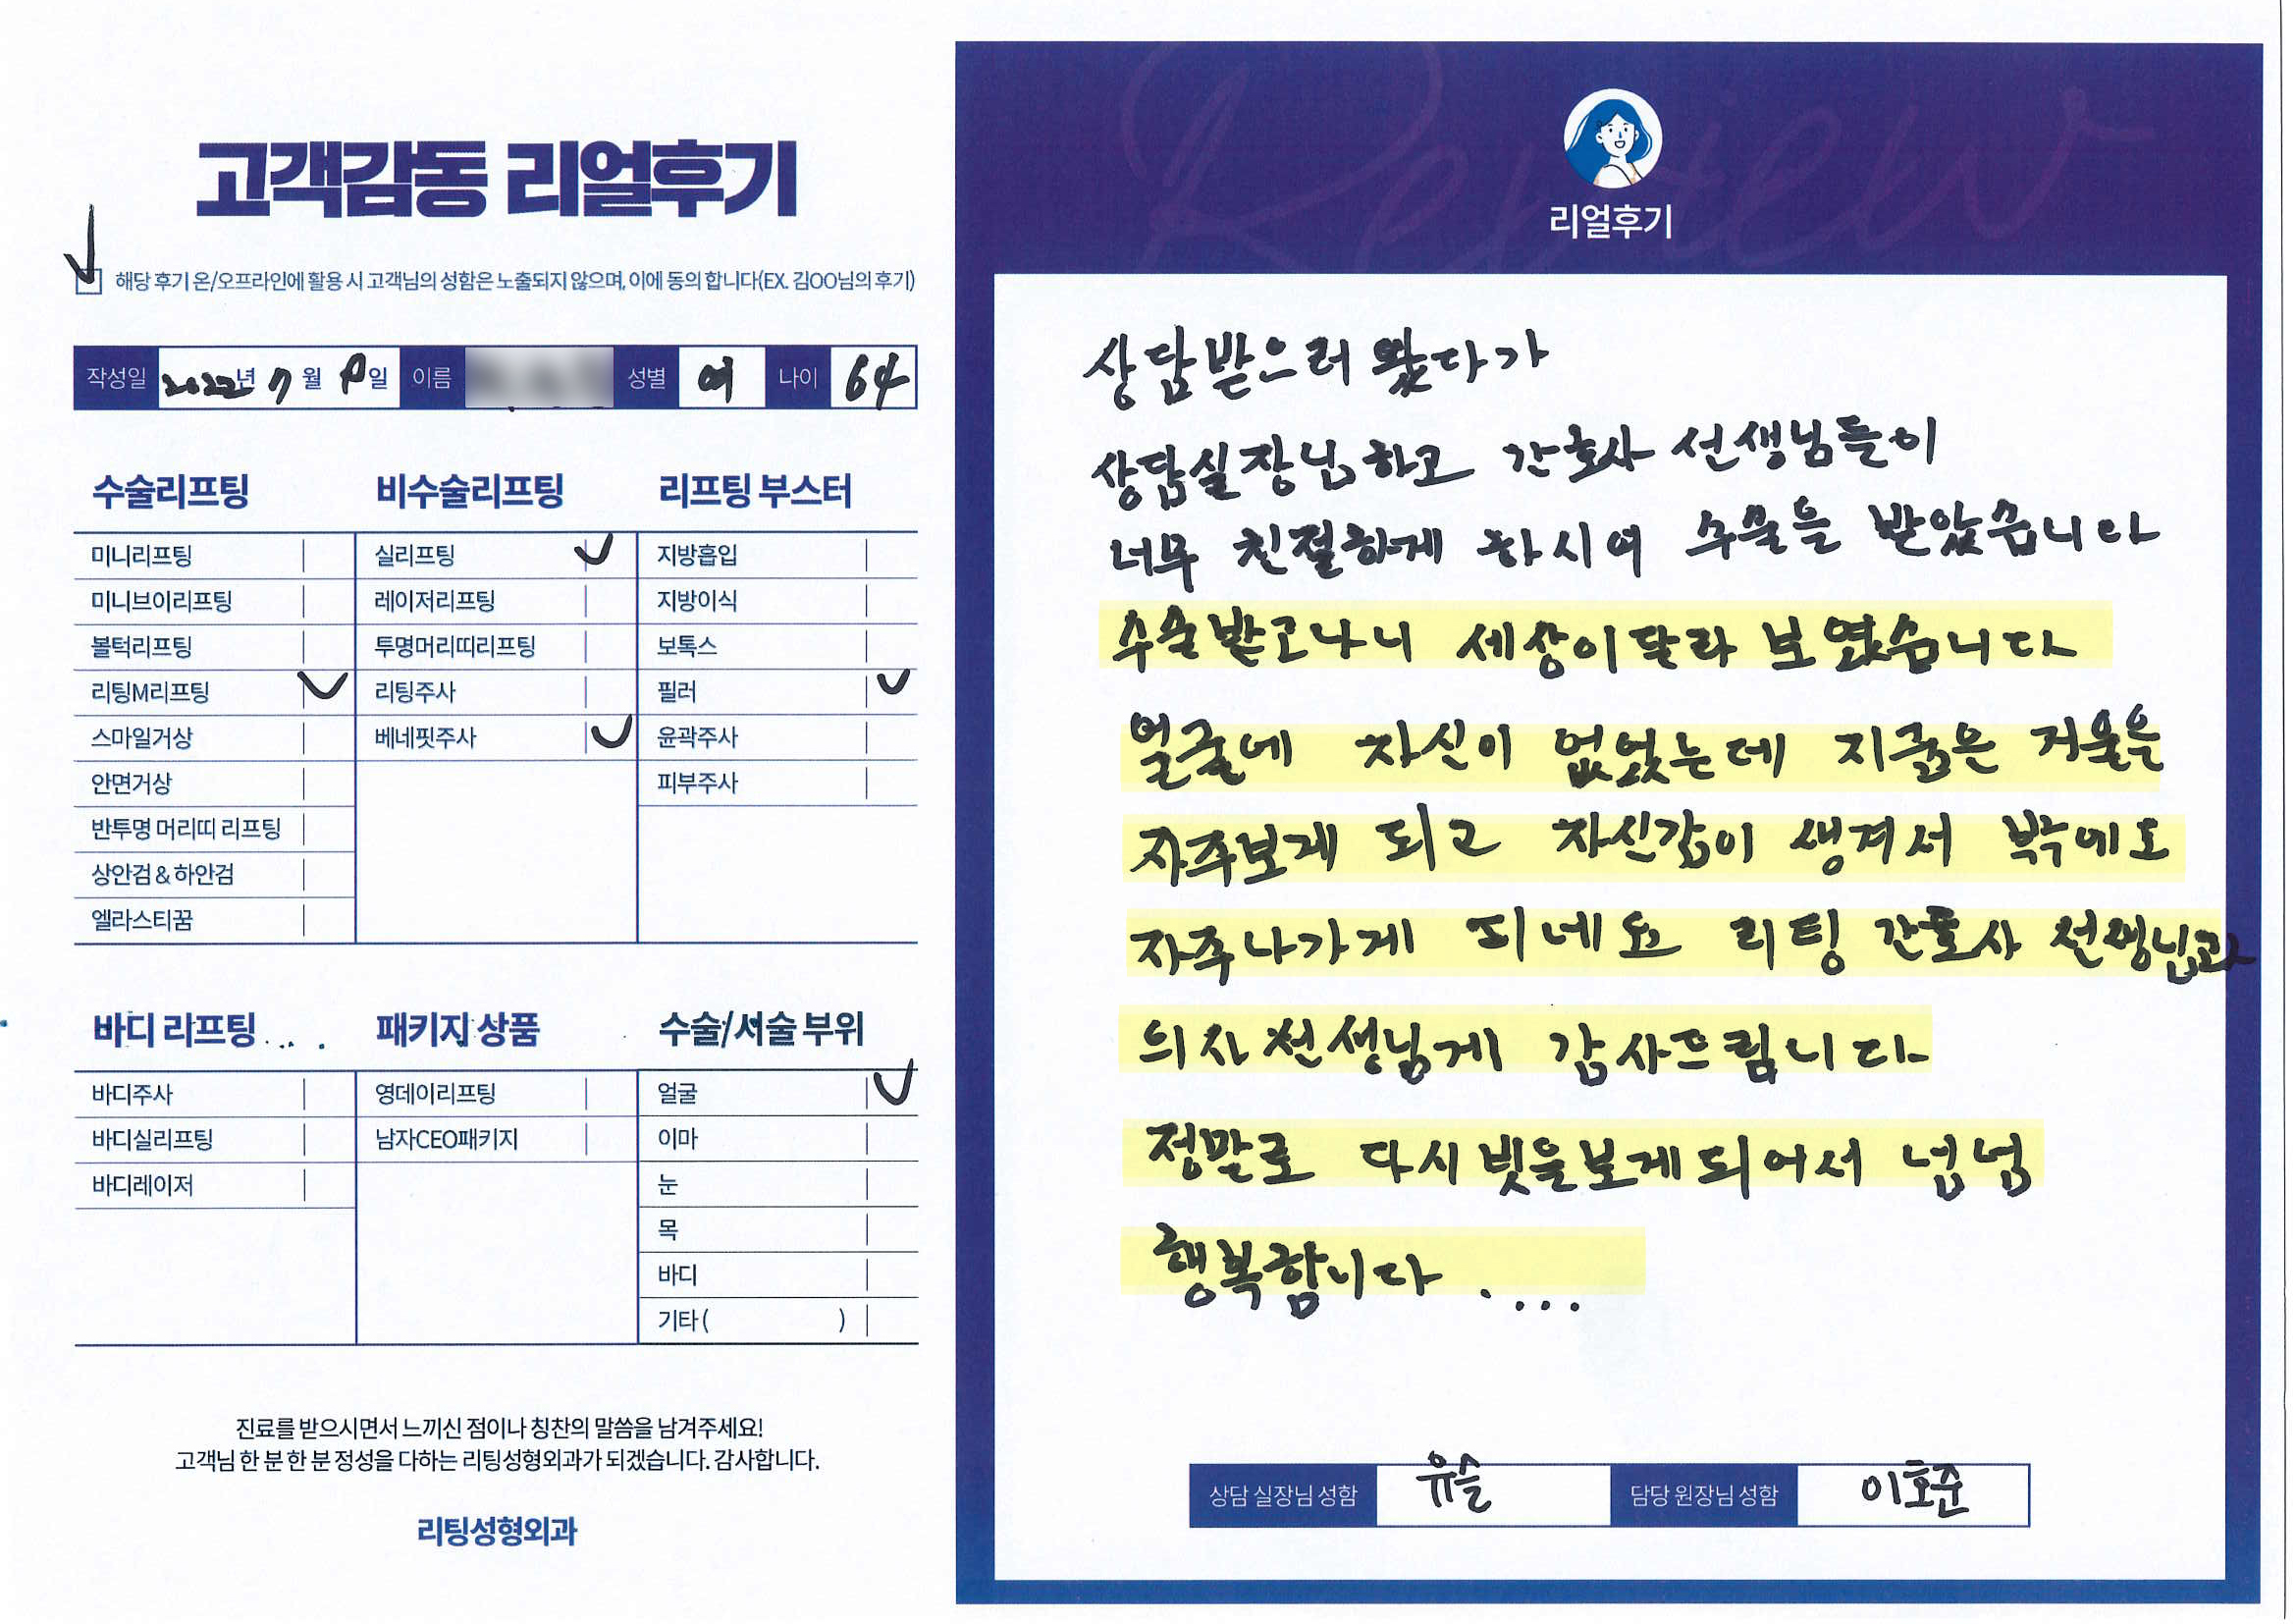 고객감동 리얼후기
해당 후기 온/오프라인에 활용 시 고객님의 성함은 노출되지 않으며, 이에 동의 합니다(EX. 김OO님의 후기)
작성일 2022년 7월 일 이름 성별 여 나이 64
수술리프팅
미니리프팅
미니브이리프팅
볼턱리프팅
리팅M리프팅
스마일거상
안면거상
반투명 머리띠 리프팅
상안검 & 하안검
엘라스티꿈
비수술리프팅
실리프팅
레이저리프팅
투명머리띠리프팅
리팅주사
베네핏주사
리프팅 부스터
지방흡입
지방이식
보톡스
필러
윤곽주사
피부주사
바디 리프팅
바디주사
바디실리프팅
바디레이저
패키지 상품
영데이리프팅
남자CEO패키지
수술/서술 부위
얼굴
이마
눈
목
바디
기타 ( )
진료를 받으시면서 느끼신 점이나 칭찬의 말씀을 남겨주세요!
고객님 한 분 한 분 정성을 다하는 리팅성형외과가 되겠습니다. 감사합니다.
리팅성형외과
Review
리얼후기
상담받으러 왔다가
상담실장님하고 간호사 선생님들이
너무 친절하게 하시여 수술을 받았습니다
수술받고나니 세상이달라 보였습니다
얼굴에 자신이 없었는데 지금은 거울을
자주보게 되고 자신감이 생겨서 밖에도
자주나가게 되네요 리팅 간호사 선생님과
의사선생님게 감사드림니다
정말로 다시빛을보게되어서 넘넘
행복함니다 ....
상담 실장님 성함 유슬
담당 원장님 성함 이호준